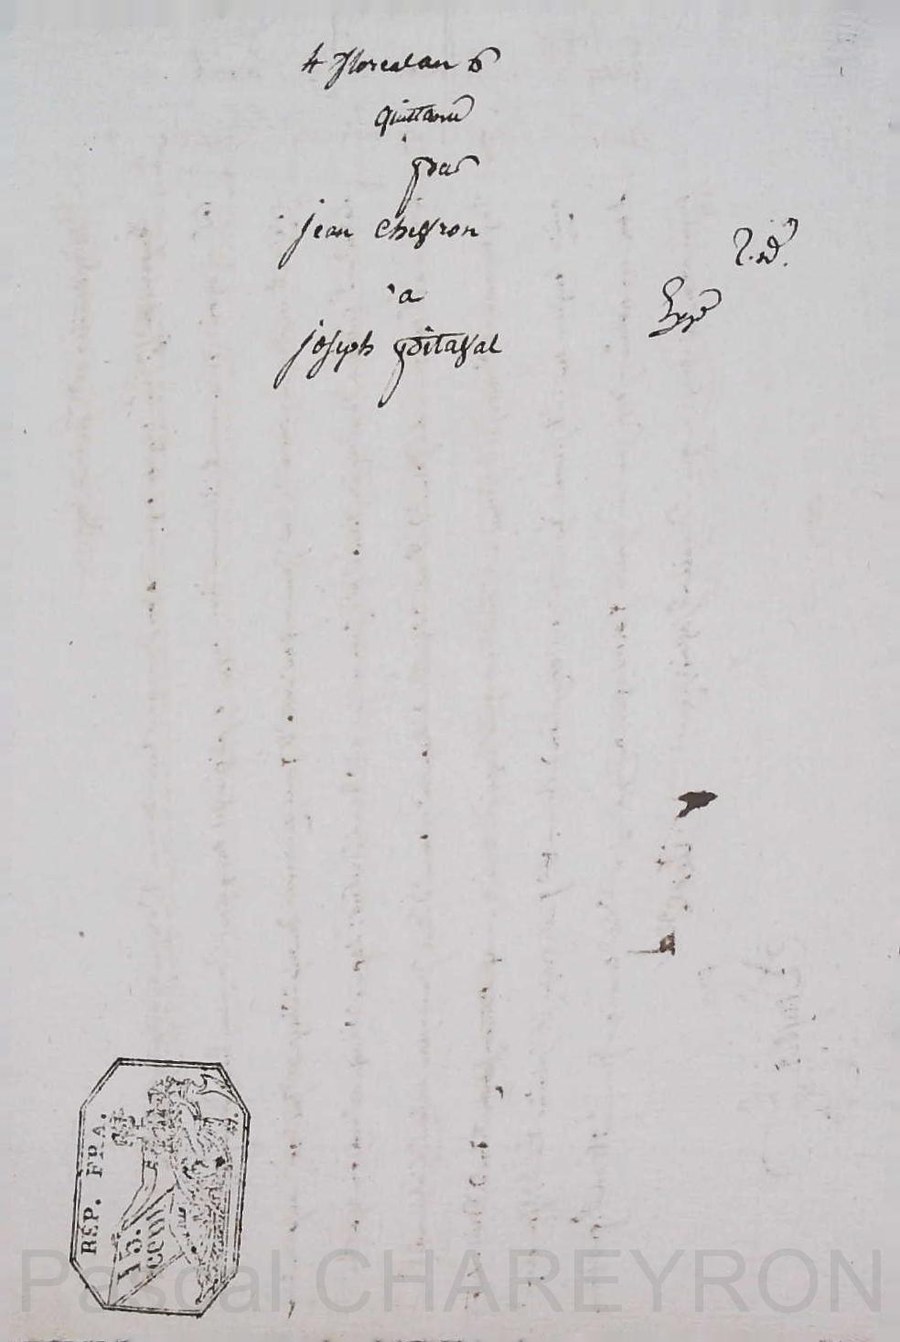 4 floreal an 6
quittance
par
jean Cheyron
a
joseph pitaval
Exp.
REP. FRA.
15.
cent
Pascal CHAREYRON